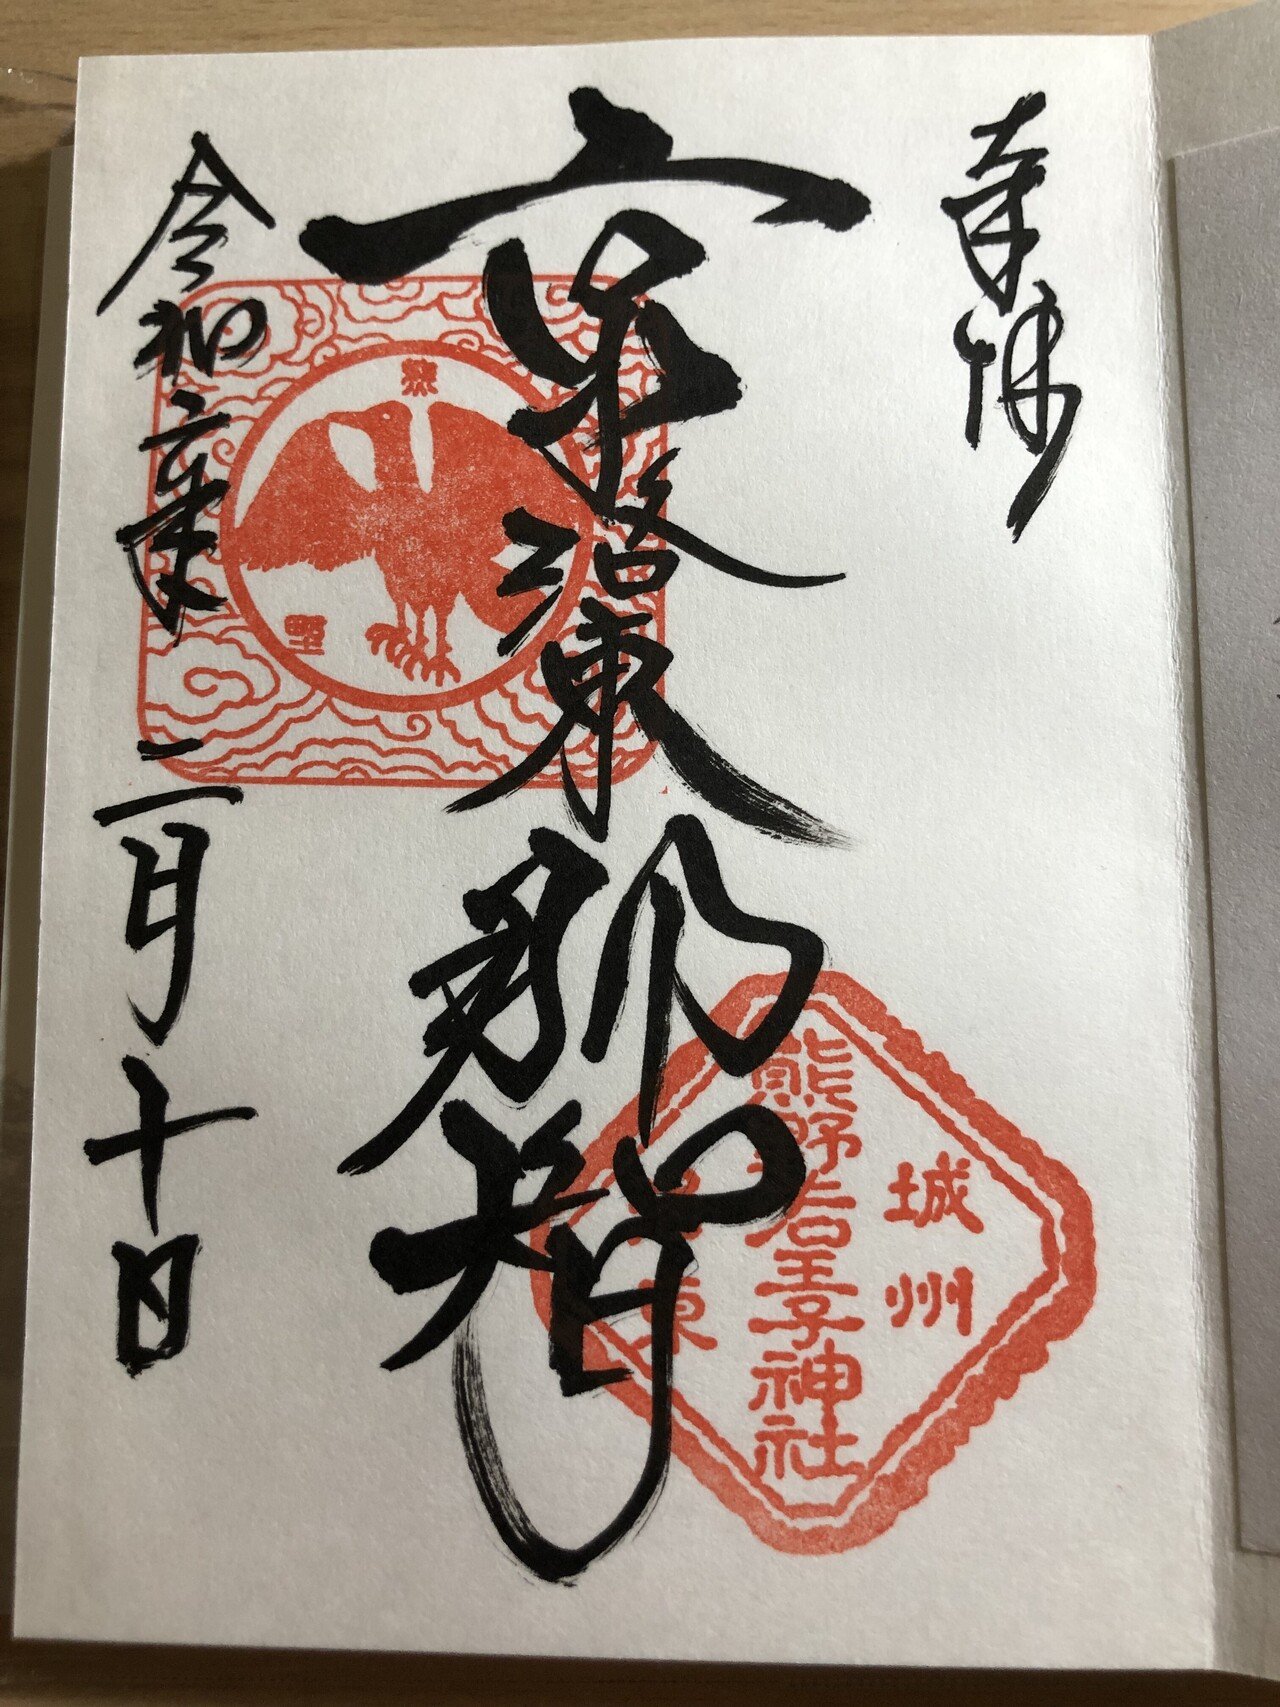 奉拝
京洛東那智
令和六年二月十日
熊
野
城州
熊野若王子神社
東